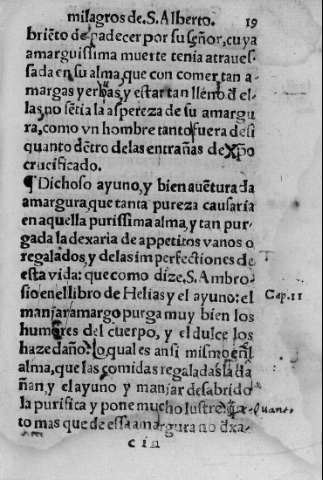 milagros de. S. Alberto. 19
briẽto de padecer por su señor, cuya
amarguissima muerte tenia atraues-
sada en su alma, que con comer tan a-
margas yerbas, y estar tan lleno đ el-
las, no sẽtia la aspereza de su amargu
ra, como vn hombre tanto fuera de si
quanto dẽtro de las entrañas de xp̃o
crucificado.
¶ Dichoso ayuno, y bien auẽturada
amargura, que tanta pureza causaria
en aquella purissima alma, y tan pur-
gada la dexaria de appetitos vanos o
regalados, y de las imperfectiones de
esta vida: que como dize, S. Ambro-
sio en el libro de Helias y el ayuno: el Cap. 11
manjar amargo purga muy bien los
humores del cuerpo, y el dulce los
haze daño: lo qual es ansi mismo en el
alma, que las comidas regaladas la da
ñan, y el ayuno y manjar desabrido
la purifica y pone mucho lustre: quan-
to mas que de essa amargura no đxa-
cia